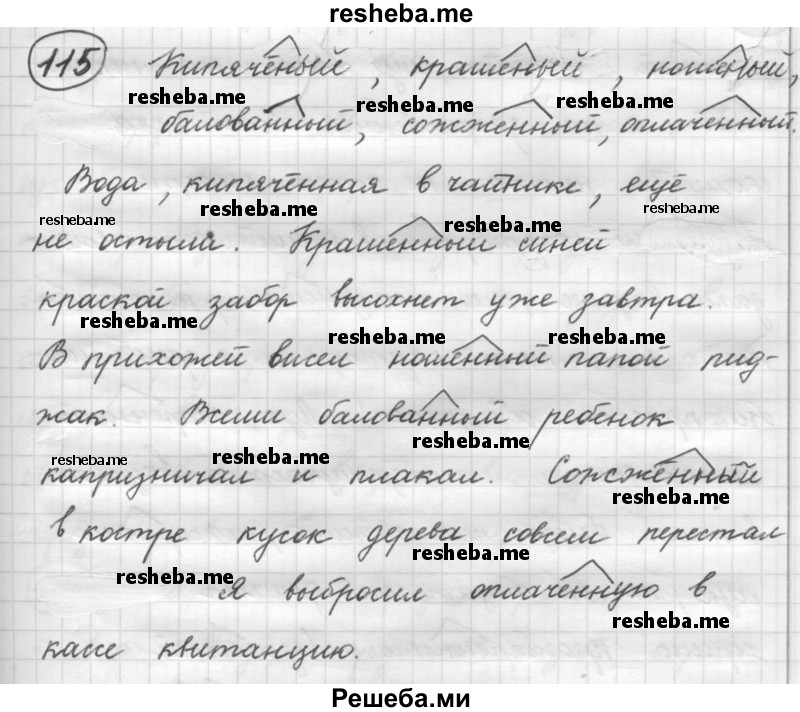 resheba.me
115 Кипячёный, крашеный, ношеный,
resheba.me resheba.me resheba.me
балованный, сожжённый, оплаченный.
Вода, кипячённая в чайнике, ещё
resheba.me resheba.me resheba.me
не остыла. Крашенный синей
resheba.me
краской забор высохнет уже завтра.
resheba.me resheba.me resheba.me
В прихожей висел ношенный папой пид-
жак. Всеми балованный ребёнок
resheba.me resheba.me resheba.me
капризничал и плакал. Сожжённый
resheba.me
в костре кусок дерева совсем перестал
resheba.me resheba.me
Я выбросил оплаченную в
resheba.me
кассе квитанцию.
Решеба.ми